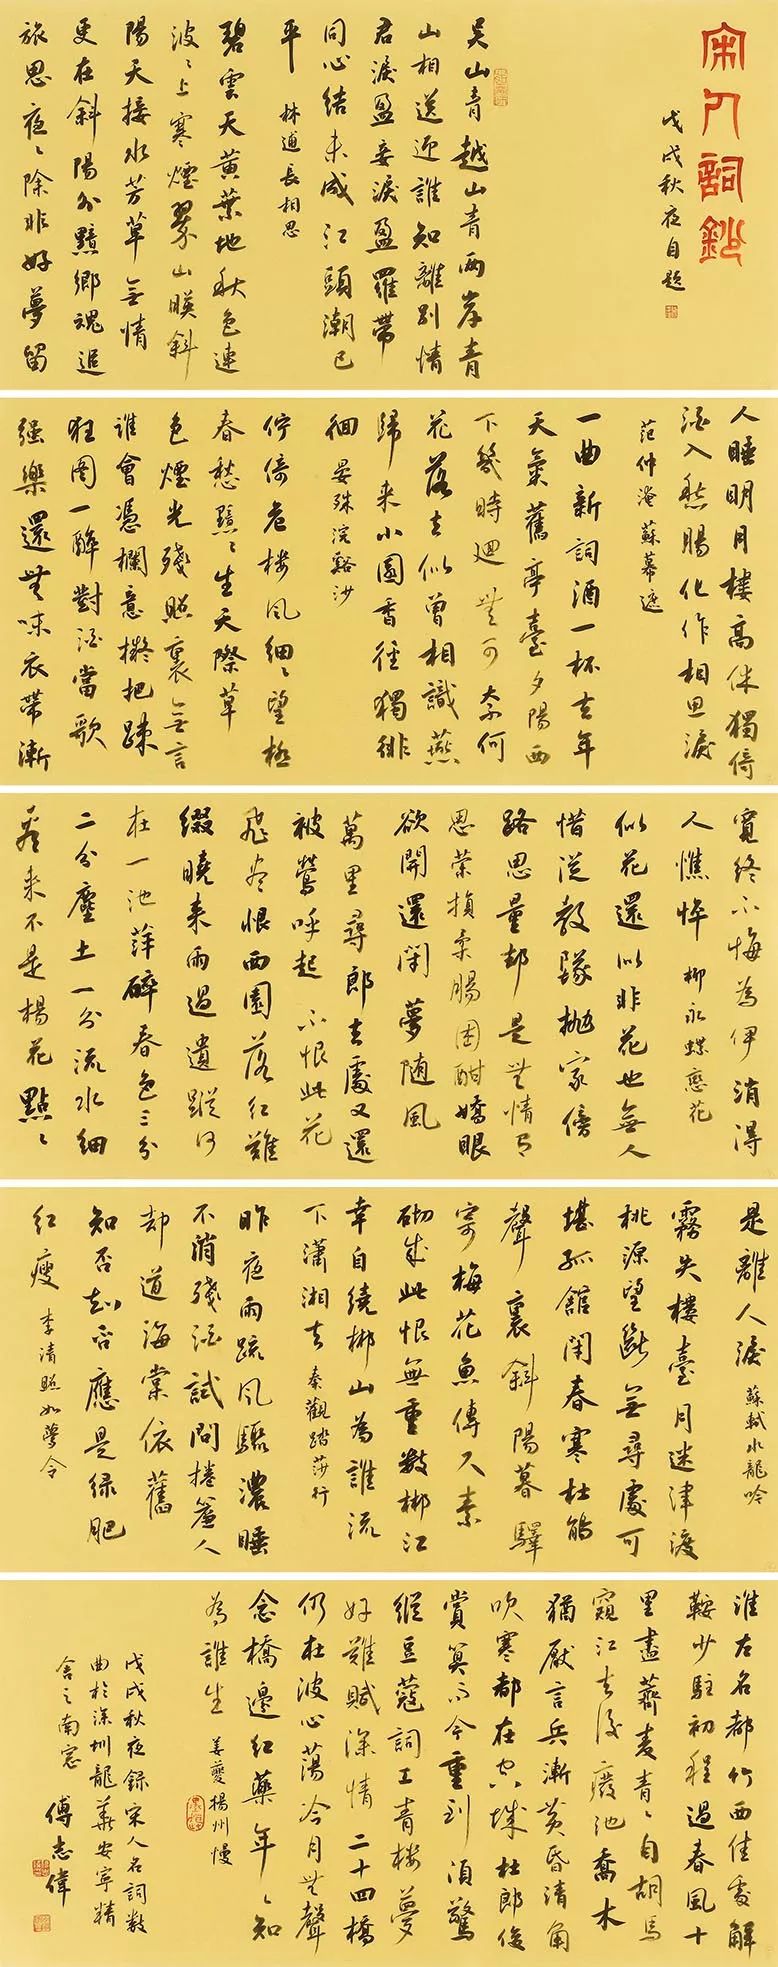 宋人詞鈔
戊戌秋夜自題
吴山青越山青兩岸青
山相送迎誰知離别情
君淚盈妾淚盈羅帶
同心結未成江頭潮已
平 林逋長相思
碧雲天黄葉地秋色連
波〻上寒煙翠山暎斜
陽天接水芳草無情
更在斜陽外黯鄉魂追
旅思夜〻除非好夢留
人睡明月樓高休獨倚
酒入愁腸化作相思淚
范仲淹蘇幕遮
一曲新詞酒一杯去年
天氣舊亭臺夕陽西
下幾時迴無可奈何
花落去似曾相識燕
歸来小園香徑獨徘
徊 晏殊浣谿沙
佇倚危楼風細〻望極
春愁黯〻生天際草
色煙光殘照裏無言
誰會憑欄意擬把疎
狂圖一醉對酒當歌
强樂還無味衣帶漸
寬終不悔為伊消得
人憔悴 柳永蝶戀花
似花還似非花也無人
惜從教墜抛家傍
路思量却是無情有
思縈損柔腸困酣嬌眼
欲開還閉夢随風
萬里尋郎去處又還
被鶯呼起不恨此花
飛盡恨西園落红難
綴曉来雨過遺蹤何
在一池萍碎春色三分
二分塵土一分流水細
看来不是楊花點〻
是離人淚 蘇軾水龍吟
霧失樓臺月迷津渡
桃源望斷無尋處可
堪孤館閉春寒杜鵑
聲裏斜陽暮驛
寄梅花魚傳尺素
砌成此恨無重數郴江
幸自繞郴山為誰流
下瀟湘去 秦觀踏莎行
昨夜雨疏風驟濃睡
不消殘酒試問捲簾人
却道海棠依舊
知否知否應是绿肥
红瘦 李清照如夢令
淮左名都竹西佳處解
鞍少駐初程過春風十
里盡薺麦青〻自胡馬
窺江去後廢池喬木
猶厭言兵漸黄昏清角
吹寒都在空城杜郎俊
賞算而今重到須驚
縱豆蔻詞工青楼夢
好難賦深情二十四橋
仍在波心蕩冷月無聲
念橋邊红藥年〻知
為誰生 姜夔楊州慢
戊戌秋夜録宋人名詞数
曲於深圳龍華安寧精
舍之南窓 傅志偉